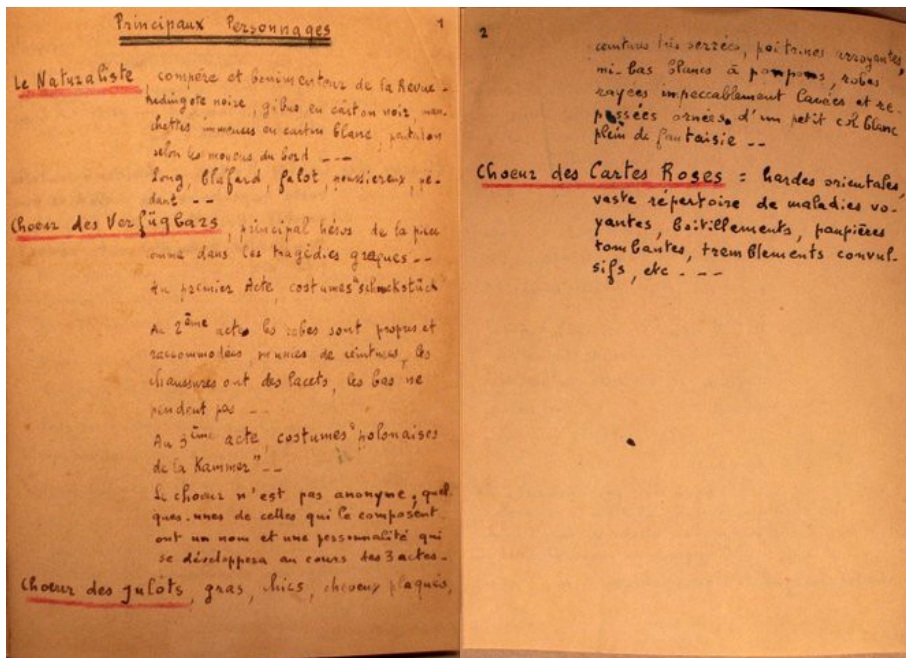 Principaux Personnages
1
Le Naturaliste compère et bonimenteur de la Revue -
Redingote noire, gibus en carton noir, man-
chettes immenses en carton blanc, pantalon
selon les moyens du bord ---
Long, blafard, falot, poussiereux, pé-
dant --
Choeur des Verfügbars, principal héros de la pièce
comme dans les tragédies grecques --
Au premier Acte, costumes "schmukstück
Au 2ème acte les robes sont propres et
raccommodées, munies de ceintures, les
chaussures ont des lacets, les bas ne
pendent pas --
Au 3ème acte, costumes "polonaises
de la Kammer" --
Le choeur n'est pas anonyme, quel-
ques-unes de celles qui le composent
ont un nom et une personnalité qui
se développera au cours des 3 actes -
Choeur des julots, gras, chics, cheveux plaqués,
2
ceintures très serrées, poitrines arroyantes,
mi-bas blancs à pompons, robes
rayées impeccablement lavées et re-
passées ornées d'un petit col blanc
plein de fantaisie --
Choeur des Cartes Roses = hardes orientales,
vaste répertoire de maladies vo-
yantes, boitillements, paupières
tombantes, tremblements convul-
sifs, etc - --